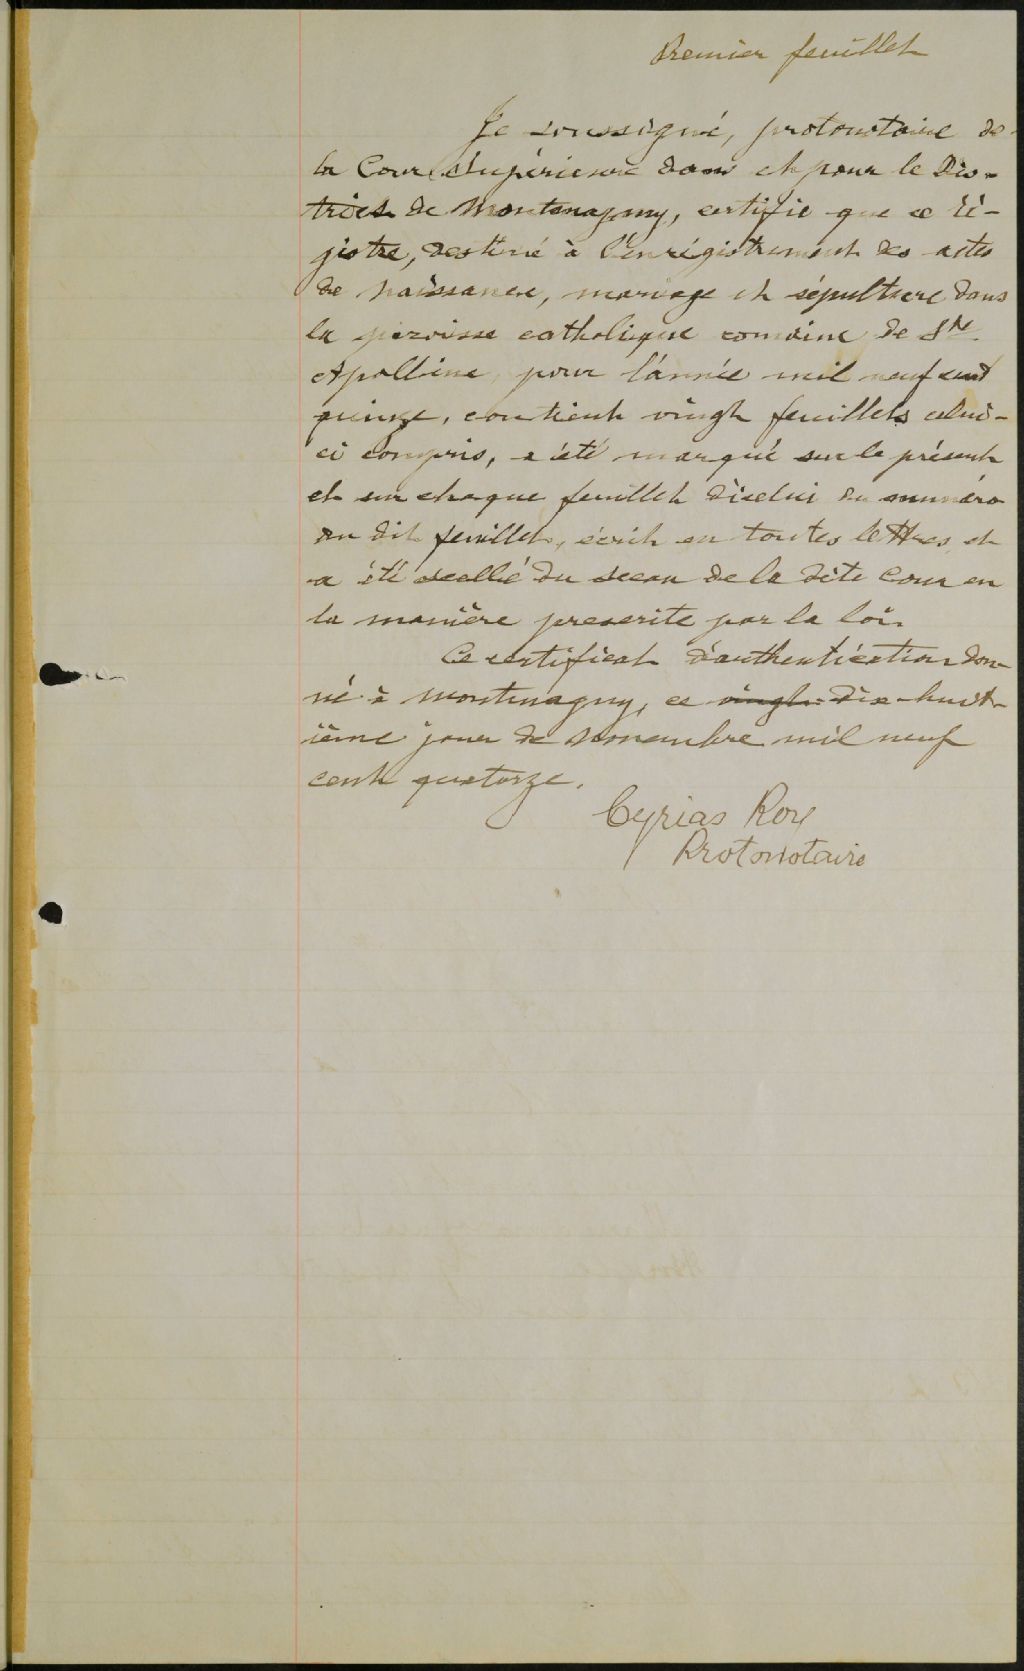 Premier feuillet
Je soussigné, protonotaire de
la Cour Supérieure dans et pour le Dis-
trict de Montmagny, certifie que ce ré-
gistre, destiné à l'enrégistrement des actes
de naissance, mariage et sépulture dans
la paroisse catholique romaine de Ste
Apolline, pour l'année mil neuf cent
quinze, contient vingt feuillets celui-
ci compris, a été marqué sur le présent
et sur chaque feuillet d'icelui du numéro
du dit feuillet, écrit en toutes lettres et
a été scellé du sceau de la dite Cour en
la manière prescrite par la loi.
Ce certificat d'authentication don-
né à Montmagny, ce vingt-dix-huit-
ième jour de novembre mil neuf
cent quatorze.
Cyrias Roy
Protonotaire